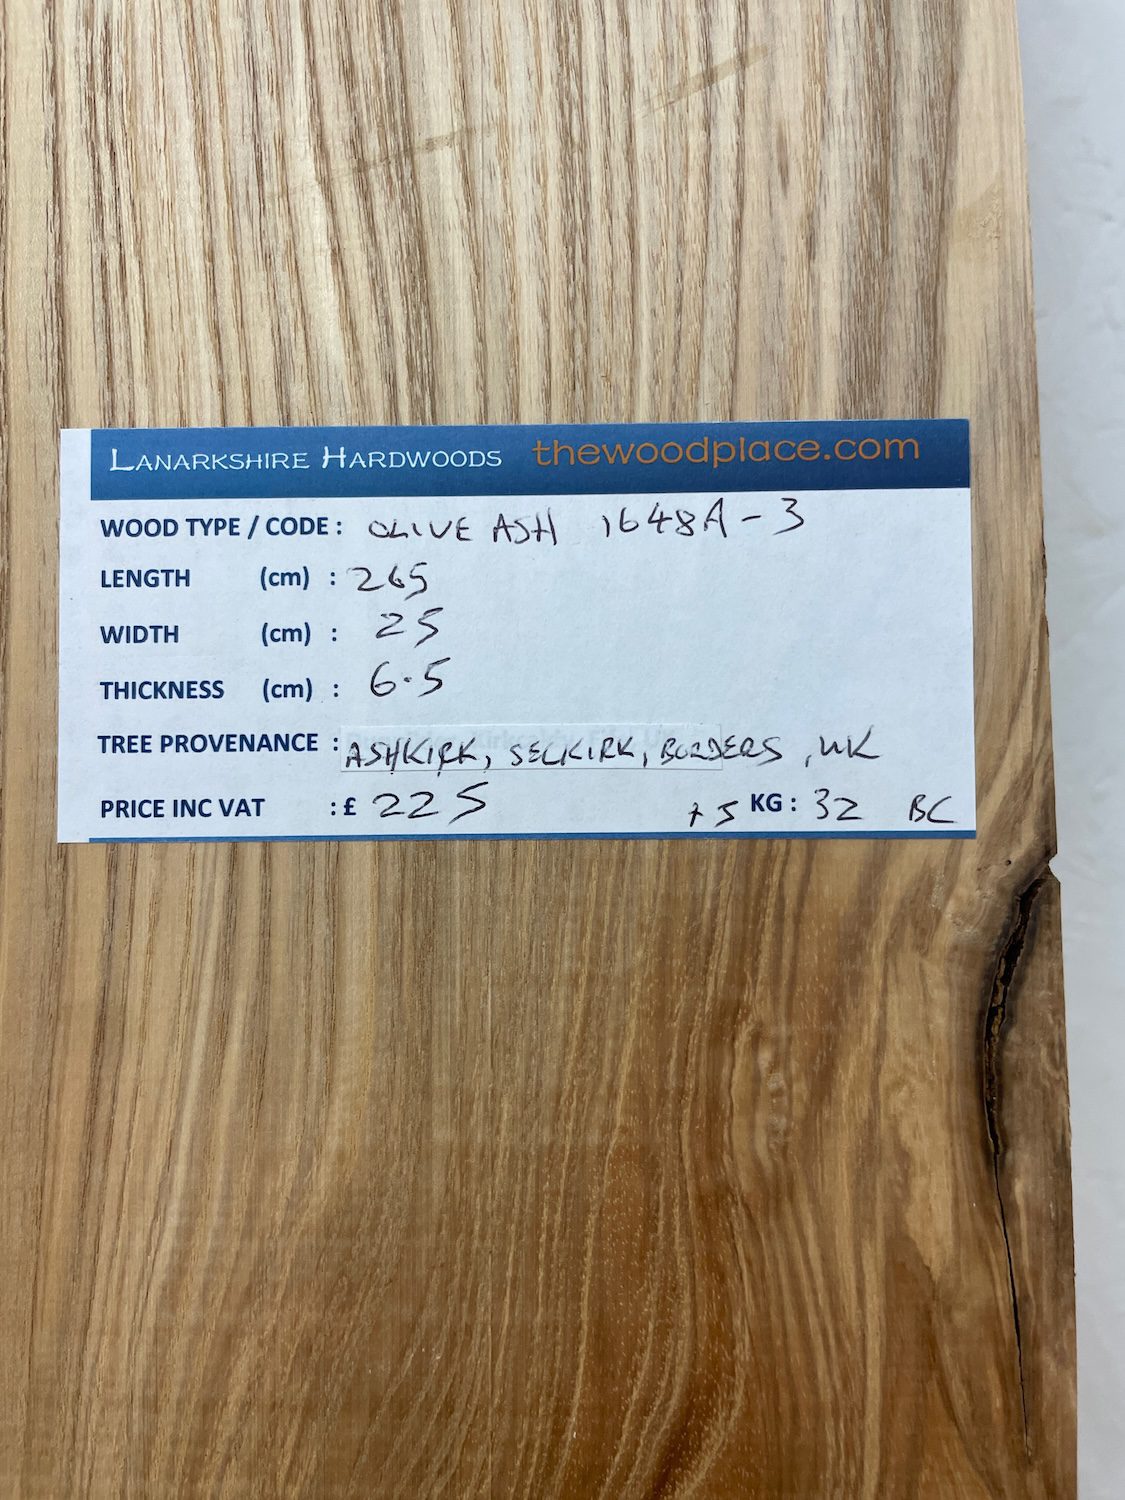 LANARKSHIRE HARDWOODS thewoodplace.com
WOOD TYPE / CODE : OLIVE ASH 1648A - 3
LENGTH (cm) : 265
WIDTH (cm) : 25
THICKNESS (cm) : 6.5
TREE PROVENANCE : ASHKIRK, SELKIRK, BORDERS, UK
PRICE INC VAT : £ 225 +5 KG : 32 BC